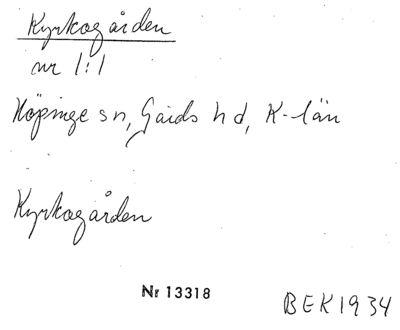 Kyrkogården
nr 1:1
Köpinge sn, Gärds hd, K-län
Kyrkogården
Nr 13318
BEK 1934